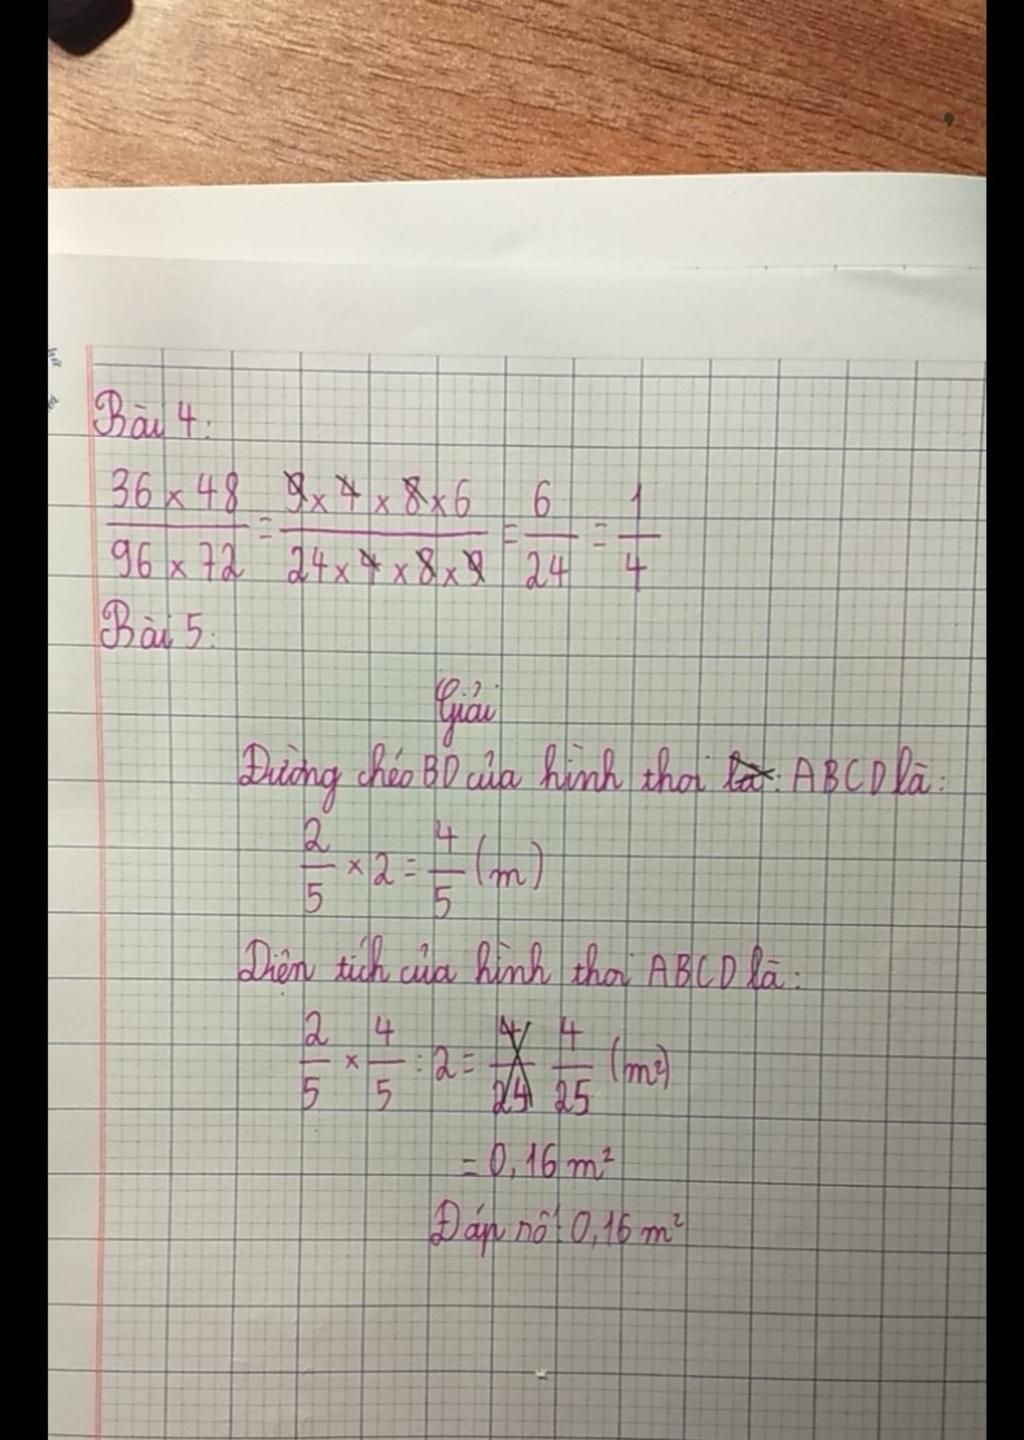 Bài 4:
36 x 48 / 96 x 72 = 9 x 4 x 8 x 6 / 24 x 4 x 8 x 9 = 6 / 24 = 1 / 4
Bài 5:
Giải
Đường chéo BD của hình thoi là: ABCD là:
2/5 x 2 = 4/5 (m)
Diện tích của hình thoi ABCD là:
2/5 x 4/5 : 2 = 4/24 4/25 (m²)
= 0,16 m²
Đáp số: 0,16 m²